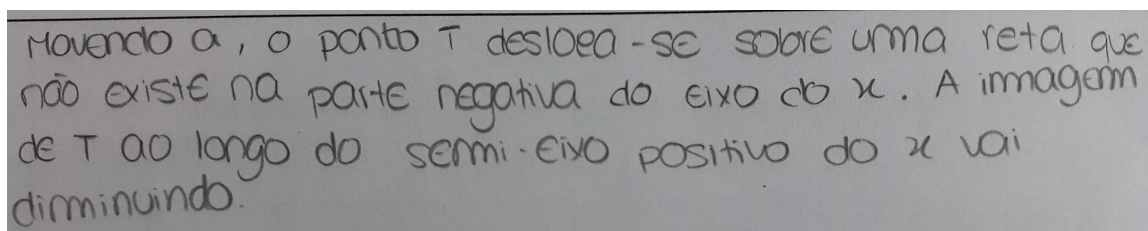 Movendo a, o ponto T desloca-se sobre uma reta que
não existe na parte negativa do eixo do x. A imagem
de T ao longo do semi-eixo positivo do x vai
diminuindo.